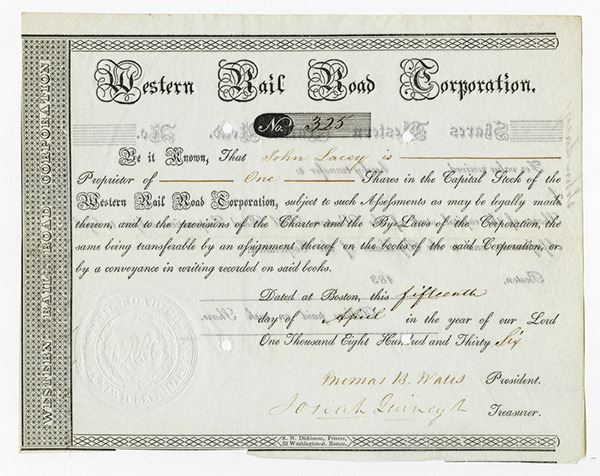 Western Rail Road Corporation.
No. 325
Be it Known, That John Lacey is
Proprietor of One Shares in the Capital Stock of the
Western Rail Road Corporation, subject to such Assessments as may be legally made
thereon, and to the provisions of the Charter and the By-Laws of the Corporation, the
same being transferable by an assignment thereof on the books of the said Corporation, or
by a conveyance in writing recorded on said books.
Dated at Boston, this fifteenth
day of April in the year of our Lord
One Thousand Eight Hundred and Thirty Six
Thomas B. Wales President.
Josiah Quincy Jr Treasurer.
S. N. Dickinson, Printer,
52 Washington-st. Boston.
WESTERN RAIL ROAD CORPORATION